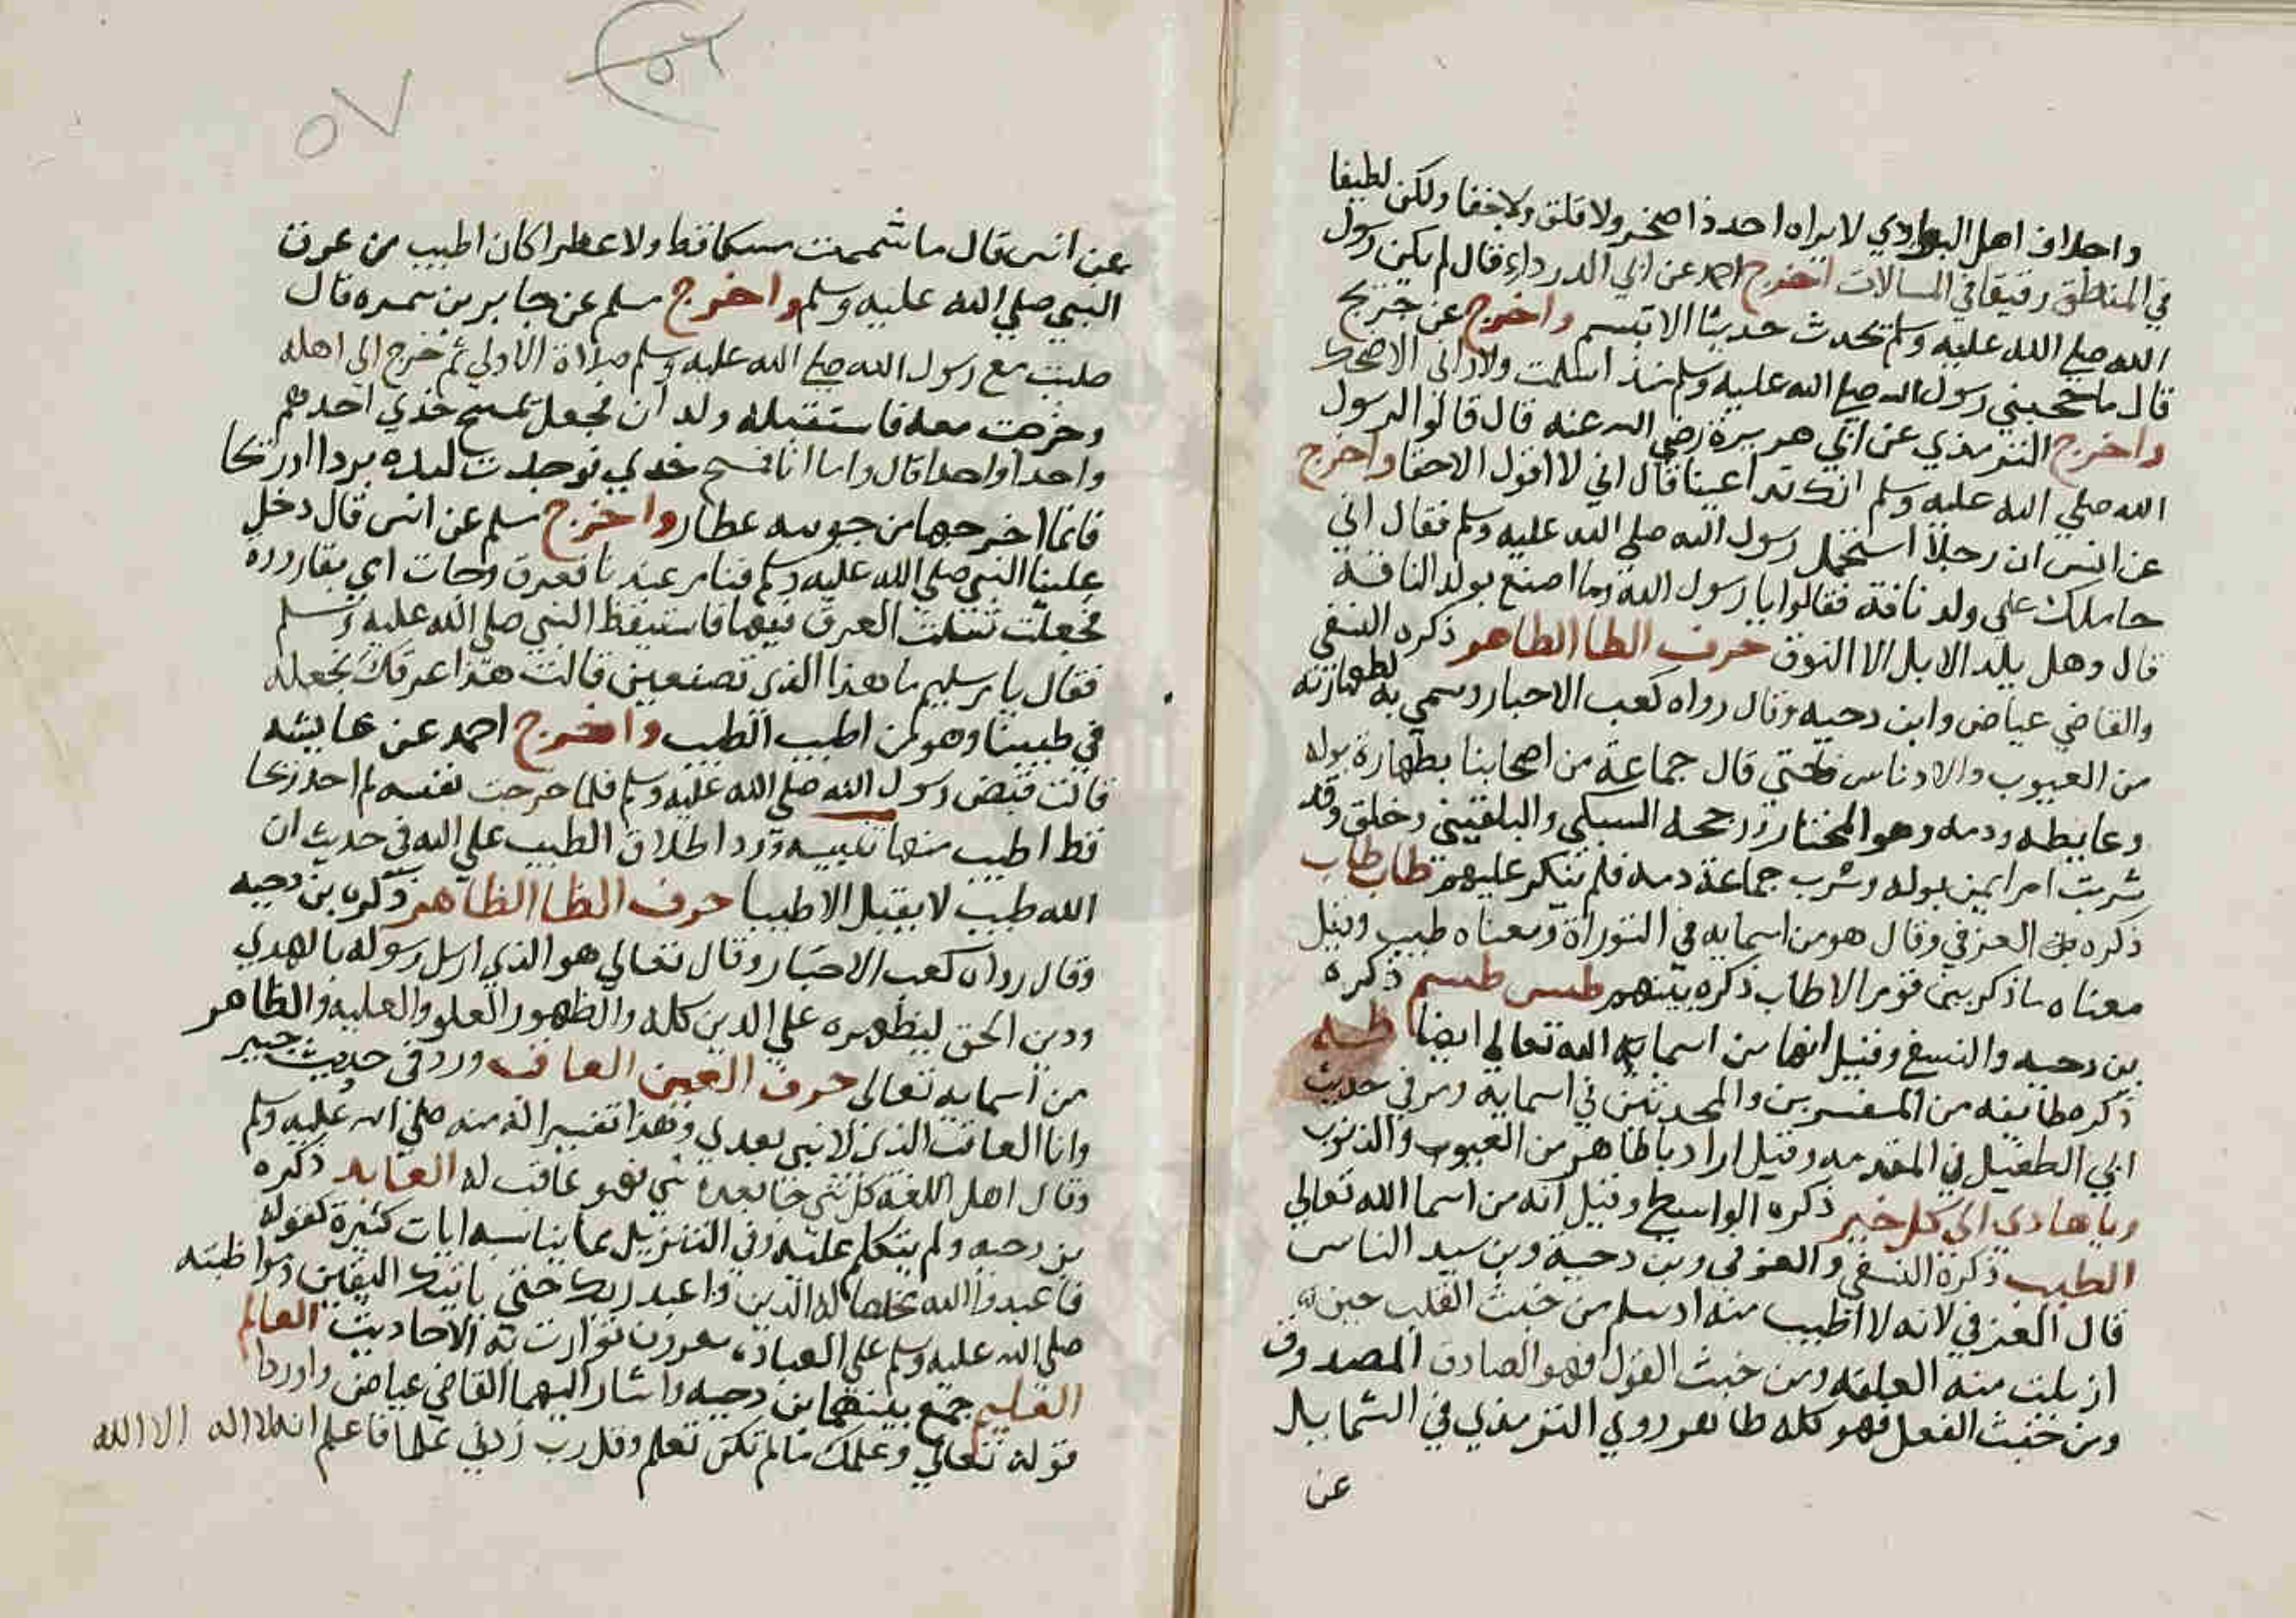 واحلاف اهل البوادي لا يراه احد ذا صخر ولا قلق ولا خفا ولكن لطيفا
في المنطق رقيقا في المسالات اخرج احمد عن ابي الدرداء قال لم يكن رسول
الله صلي الله عليه وسلم يحدث حديثا الا تبسم واخرج عن جرير
قال ما حجبني رسول الله صلي الله عليه وسلم منذ اسلمت ولا راني الا ضحك
واخرج الترمذي عن ابي هريرة رضي الله عنه قال قالوا لرسول
الله صلي الله عليه وسلم انك تداعبنا قال اني لا اقول الا حقا واخرج
عن انس ان رجلا استحمل رسول الله صلي الله عليه وسلم فقال اني
حاملك علي ولد ناقة فقالوا يا رسول الله وما اصنع بولد الناقة
قال وهل يلد الابل الا النوق حرف الطا الطاهر ذكره النسفي
والقاضي عياض وابن دحيه وقال رواه كعب الاحبار وسمي به لطهارته
من العيوب والادناس حتي قال جماعة من اصحابنا بطهارة بوله
وغايطه ودمه وهو المختار ورجحه السبكي والبلقيني وخلق وقد
شربت ام ايمن بوله وشرب جماعة دمه فلم ينكر عليهم طاب طاب
ذكره العزفي وقال هو من اسمايه في التوراة ومعناه طيب وقيل
معناه ما ذكر بين قوم الا طاب ذكره بينهم طس طسم ذكره
بن دحيه والنسفي وقيل انها من اسمايه الله تعالي ايضا طه
ذكره طايفه من المفسرين والمحدثين في اسمايه ومر في حديث
ابي الطفيل في المقدمه وقيل اراد يا طاهر من العيوب والذنوب
ويا هادي الي كل خير ذكره الواسطي وقيل انه من اسما الله تعالي
الطيب ذكره النسفي والعزفي وبن دحية وبن سيد الناس
قال العزفي لانه لا اطيب منه اذ سلم من خبث القلب حين
ازيلت منه العلقه ومن خبث القول فهو الصادق المصدوق
ومن خبث الفعل فهو كله طاهر روي الترمذي في الشمايل
عن
عن انس قال ما شممت مسكا قط ولا عطرا كان اطيب من عرق
النبي صلي الله عليه وسلم واخرج مسلم عن جابر بن سمره قال
صليت مع رسول الله صلي الله عليه وسلم صلاة الاولي ثم خرج الي اهله
وخرجت معه فاستقبله ولدان فجعل يمسح خدي احدهم
واحدا واحدا قال واما انا فمسح خدي فوجدت ليده بردا او ريحا
فانما اخرجها من جونه عطار واخرج مسلم عن انس قال دخل
علينا النبي صلي الله عليه وسلم فنام عندنا فعرق وجات امي بقاروره
فجعلت تسلت العرق فيها فاستيقظ النبي صلي الله عليه وسلم
فقال يا م سليم ما هذا الذي تصنعين قالت هذا عرقك نجعله
في طيبنا وهو من اطيب الطيب واخرج احمد عن عايشه
قالت قبض رسول الله صلي الله عليه وسلم فلما خرجت نفسه لم اجد ريحا
قط اطيب منها تنبيه ورد اطلاق الطيب علي الله في حديث ان
الله طيب لا يقبل الا طيبا حرف الظا الظاهر ذكره بن دحيه
وقال رواه كعب الاحبار وقال تعالي هو الذي ارسل رسوله بالهدي
ودين الحق ليظهره علي الدين كله والظهور العلو والعلبه والظاهر
من اسمايه تعالي حرف العين العاقب ورد في حديث جبير
وانا العاقب الذي لا نبي بعدي وهذا تفسيرا له منه صلي الله عليه وسلم
وقال اهل اللغه كل شي جا بعده شي فهو عاقب له العابد ذكره
بن دحيه ولم يتكلم عليه وفي التنزيل مما يناسبه ايات كثيرة كقوله
فاعبدوا الله مخلصا له الدين واعبد ربك حتي ياتيك اليقين ومواظبته
صلي الله عليه وسلم علي العباده معروف تواترت به الاحاديث العالم
العليم جمع بينهما بن دحيه واشار اليهما القاضي عياض واوردا
قوله تعالي وعلمك ما لم تكن تعلم وقل رب زدني علما فاعلم انه لا اله الا الله
٥٧